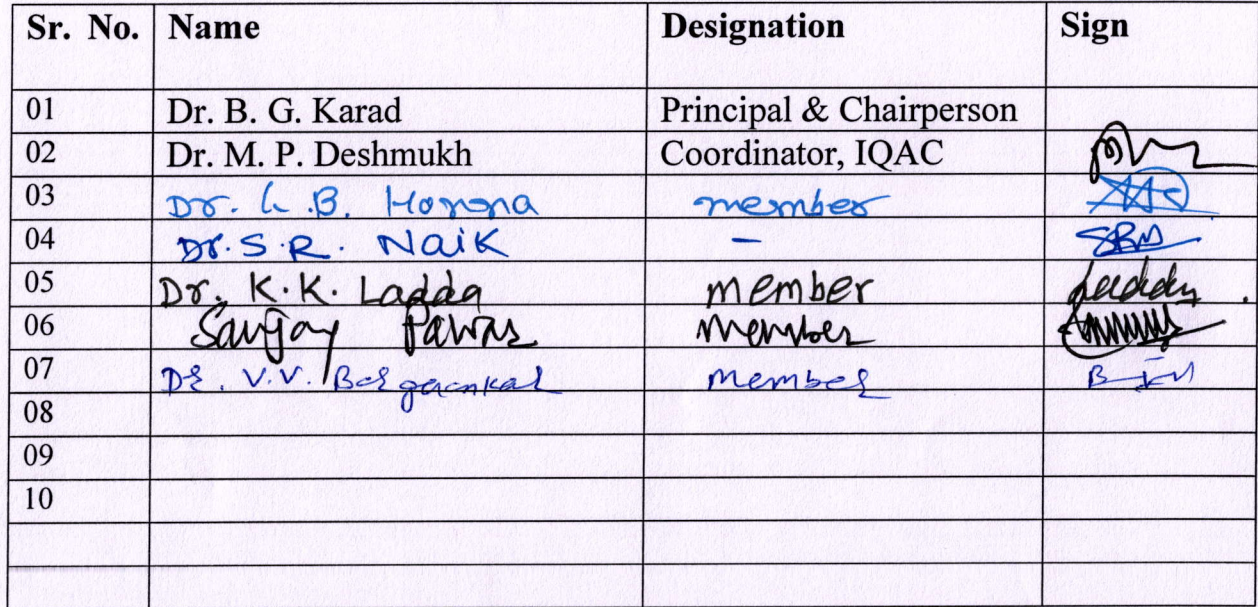 Sr. No. Name Designation Sign
01 Dr. B. G. Karad Principal & Chairperson
02 Dr. M. P. Deshmukh Coordinator, IQAC
03 Dr. B. member
04 Dr. S.R. Naik -
05 Dr. K.K. Ladda member
06 Sanjay Pawar member
07 Dr. V.V. member
08
09
10